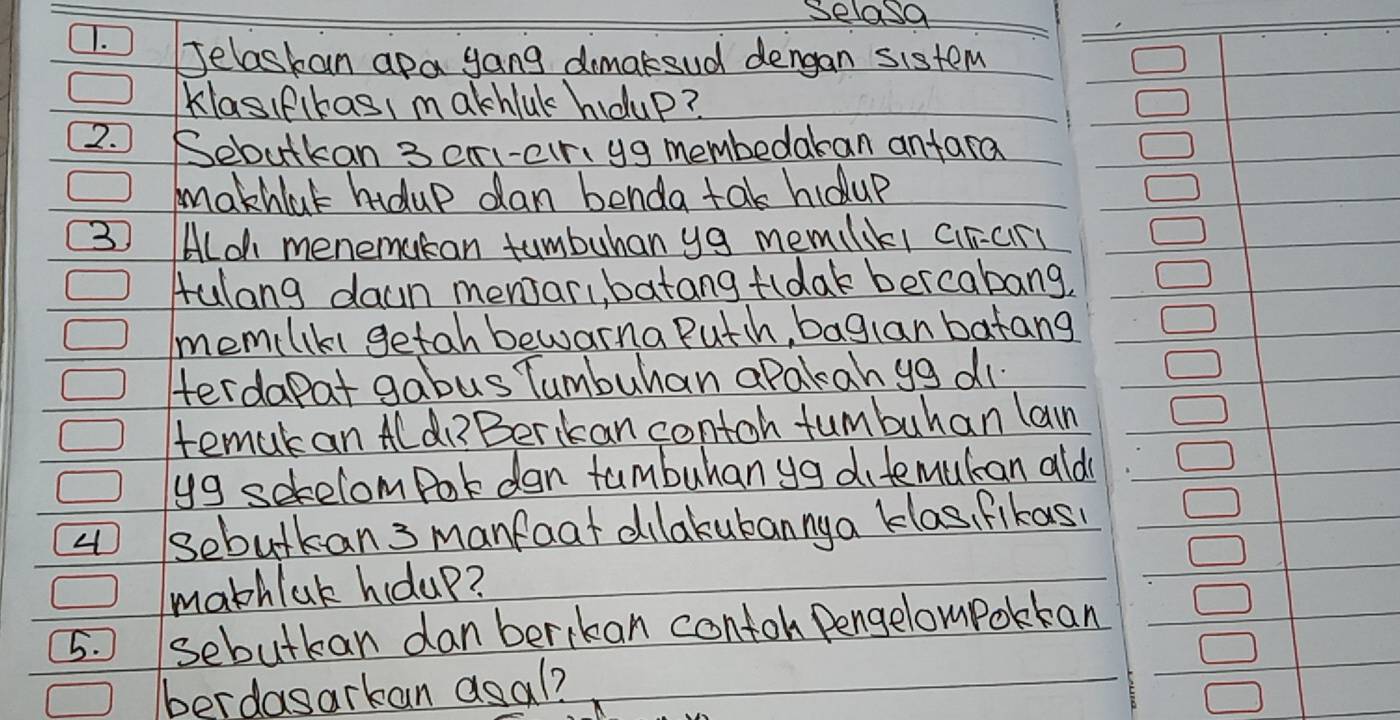 Selasa
1. Jelaskan apa yang dimaksud dengan sistem
klasifikasi makhluk hidup?
2. Sebutkan 3 ciri-ciri yg membedakan antara
makhluk hidup dan benda tak hidup
3 Aldi menemukan tumbuhan yg memiliki ciri-ciri
tulang daun menjari, batang tidak bercabang.
memiliki getah bewarna Putih, bagian batang
terdapat gabus Tumbuhan apakah yg di
temukan Aldi? Berikan contoh tumbuhan lain
yg sekelompok dgn tumbuhan yg ditemukan aldi
4 Sebutkan 3 manfaat dilakukannya klasifikasi
makhluk hidup?
5. Sebutkan dan berikan contoh Pengelompokkan
berdasarkan asal?